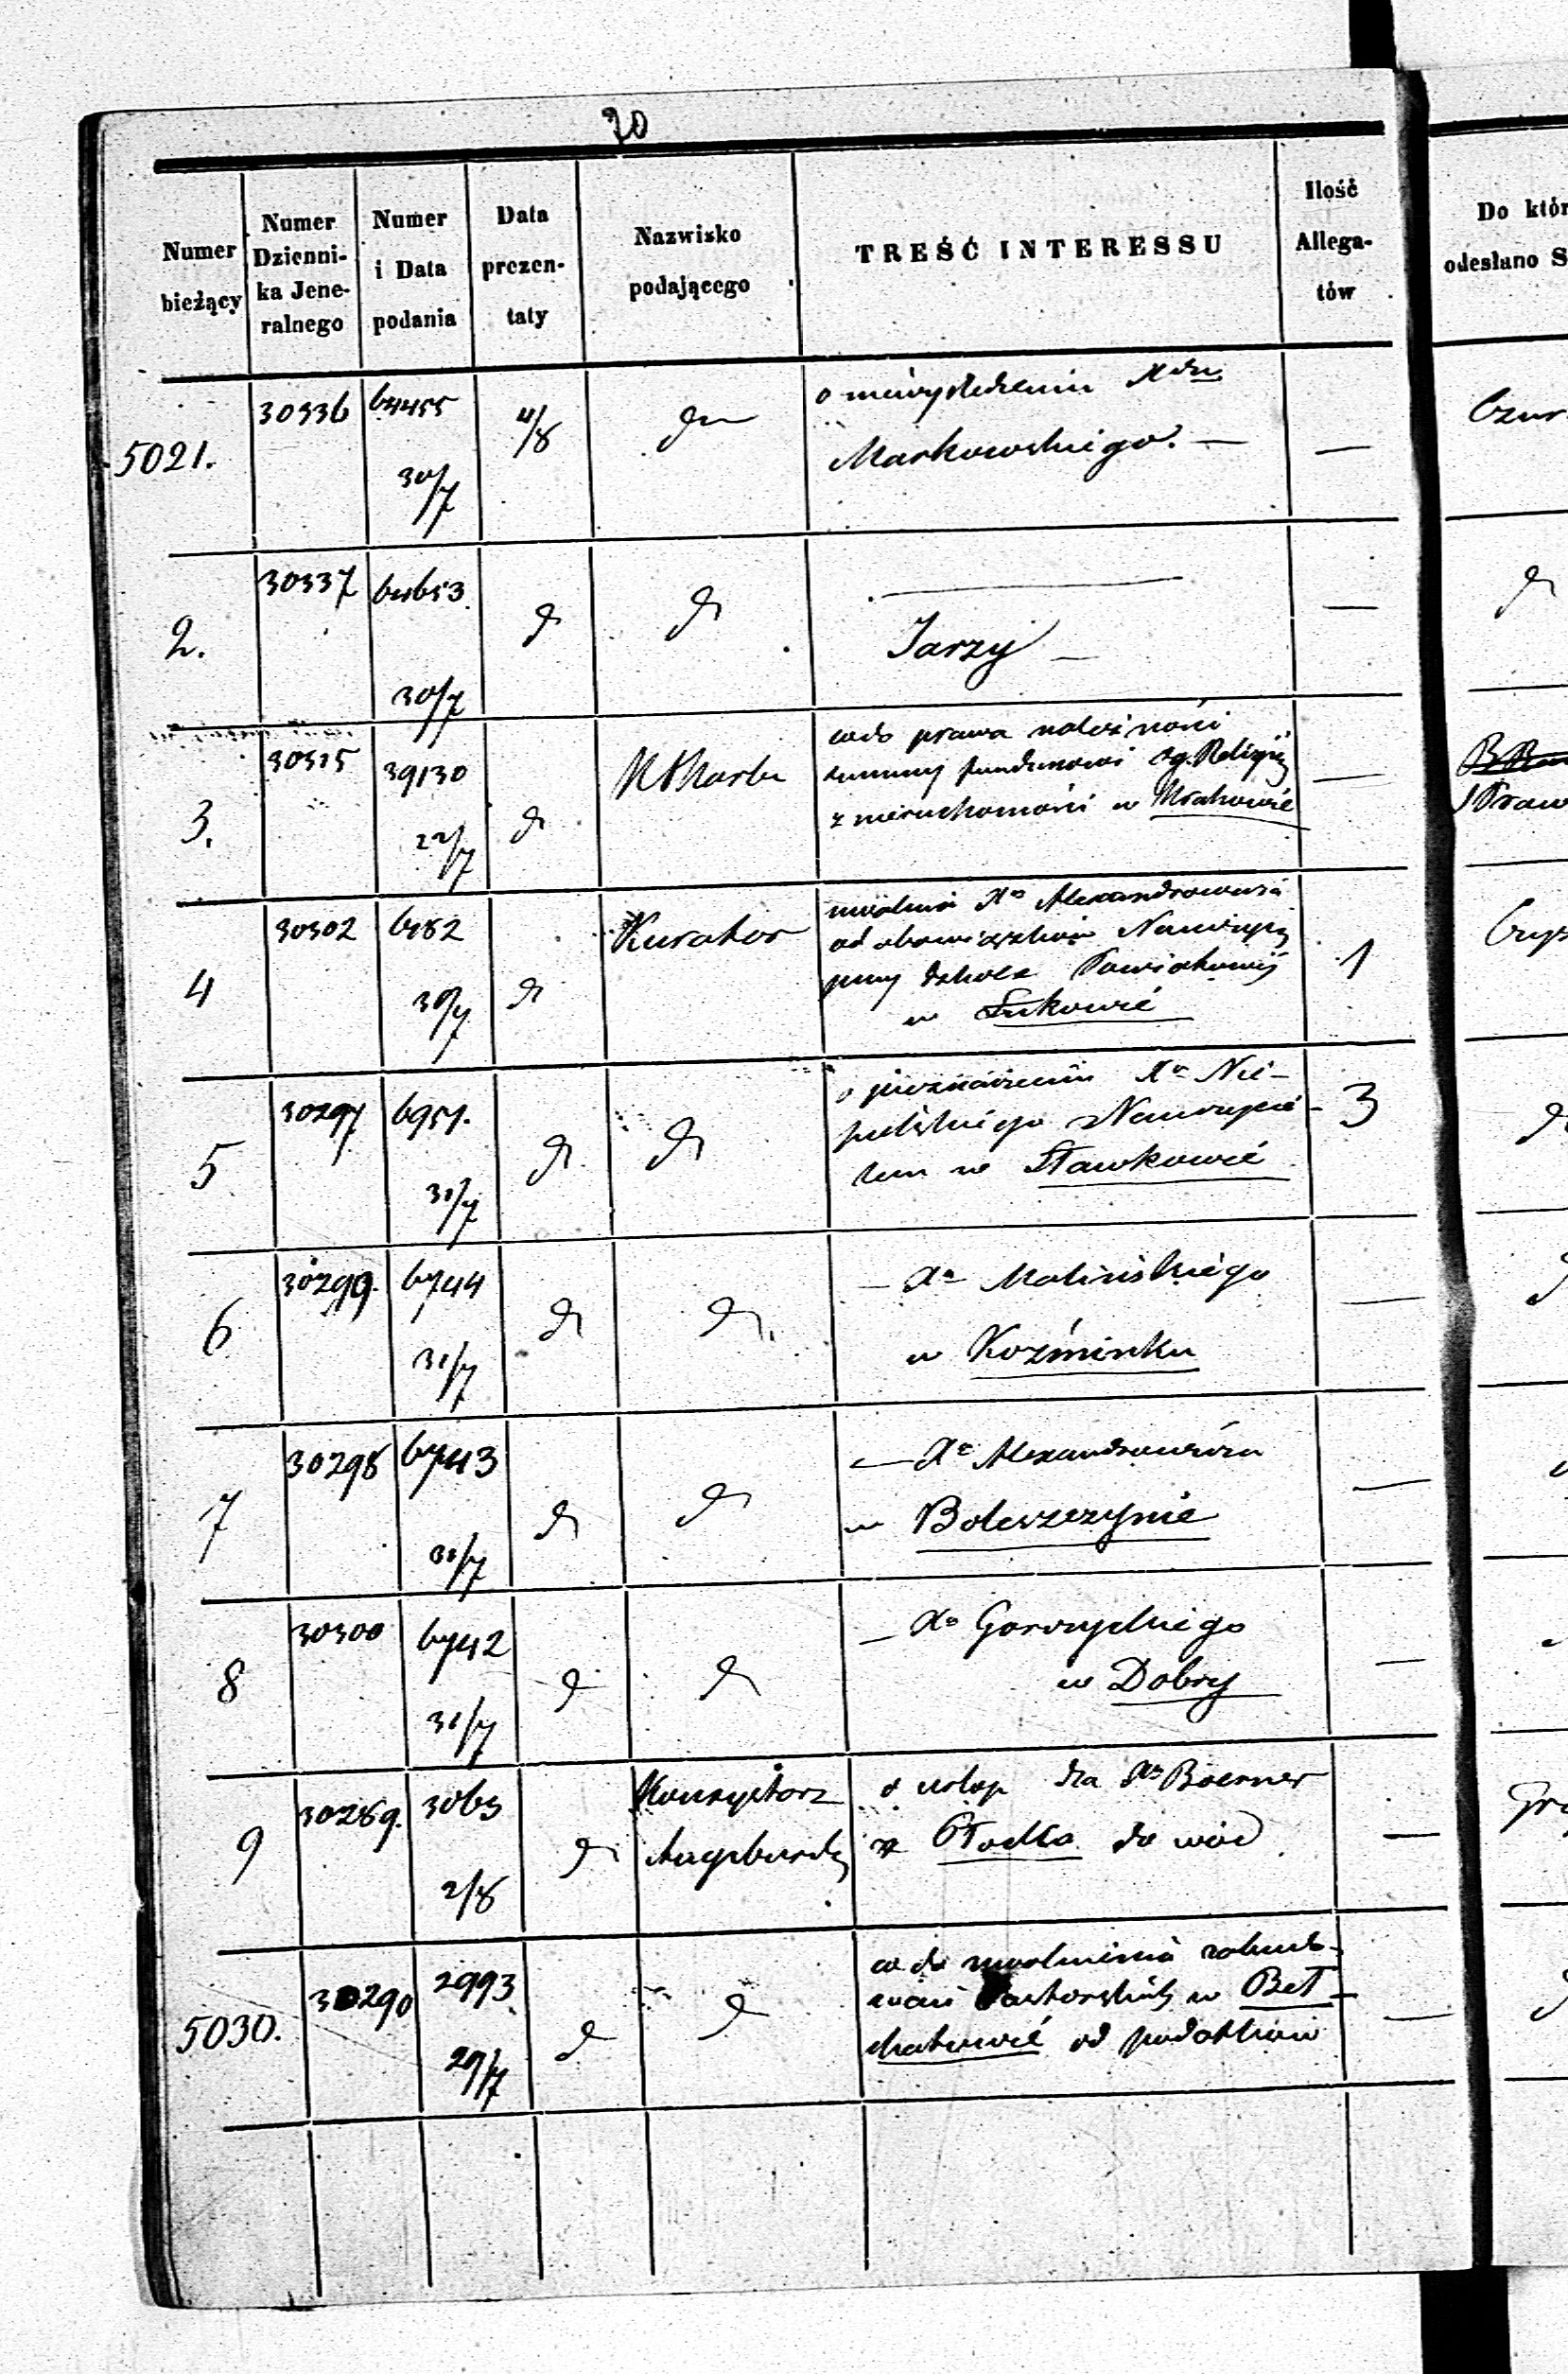 20
Numer bieżący
Numer Dzienni-ka Jene-ralnego
Numer i Data podania
Data prezen-taty
Nazwisko podającego
TREŚĆ INTERESSU
Ilość Allega-tów
Do któr
odesłano S
5021. 30336 64455 30/7 4/8 dn
o niewyśledzeniu Xdza
Markowskiego. —
2. 30337 64653 30/7 d d
Jarzy —
3. 30315 39130 22/7 d
co do prawa należności
summy funduszowi Zg. Religij
z nieruchomości w Krakowie
4 30302 30/7 d Kurator 1
uwolnia Xa Alexandrowicza
od obowiązków Nauczyci
przy szkole Powiatowej
w Łukowie
5 30297 31/7 d d 3
o przeznaczeniu Xa
Nauczycie-
lem w Sławkowie
6 30299. 6744 31/7 d d
— Xa Malińskiego
w Koźminku
7 30298 6743 31/7 d d
— Xa Alexandrowicza
w Boleszczynie
8 30300 6742 31/7 d d
— Xa
w Dobry
9 30289. 3065 2/8 d Konsystorz Augsburski
o urlop dla Xa Boerner
z Płocka do wód
5030. 30290 2993 29/7 d d
co do uwolnienia zabudo-
wań Pastorskich w Beł-
chatowie od podatków